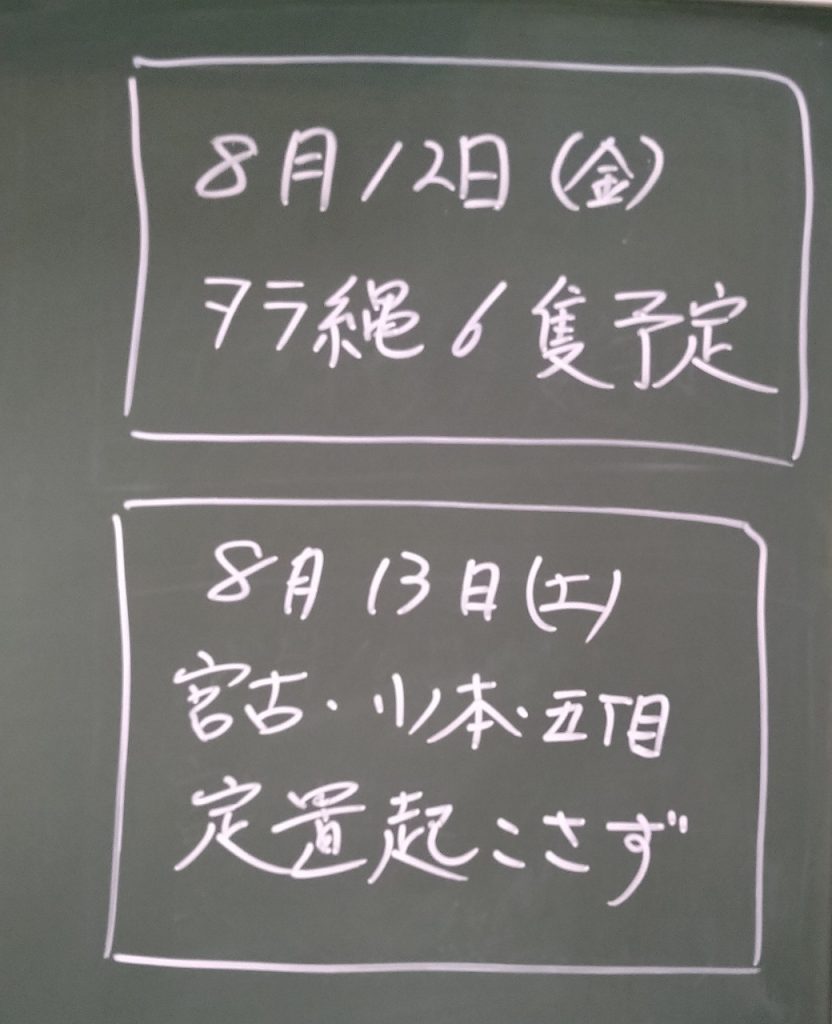 8月12日(金)
タラ縄6隻予定
8月13日(土)
宮古・小本・五丁目
定置起こさず